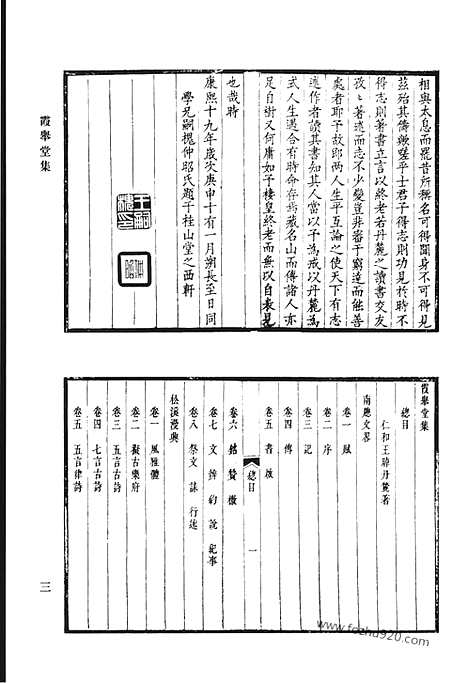 霞舉堂集
相與太息而罷昔所稱名可得聞身不可得見
茲殆其儔歟嗟乎士君子得志則功見於時不
得志則著書立言以終老若丹麓之讀書交友
孜孜著述而志不少變豈非審于窮達而能善
處者耶予故即兩人生平互論之使天下有志
述作者讀其書知其人當以予為戒以丹麓為
式人生遇合有時命存焉藏名山而傳諸人亦
足自樹又何庸如予棲皇終老而無以自表見
也哉時
康熙十九年歲次庚申十有一月朔長至日同
學兄嗣槐仲昭氏題于桂山堂之西軒
霞舉堂集
總目
仁和王晫丹麓著
南窻文畧
卷一 賦
卷二 序
卷三 記
卷四 傳
卷五 書 啟
總目 一
卷六 銘 贊 檄
卷七 文 辨 約 說 紀事
卷八 祭文 誄 行述
松溪漫興
卷一 風雅體
卷二 擬古樂府
卷三 五言古詩
卷四 七言古詩
卷五 五言律詩
三
www.fozhu920.com